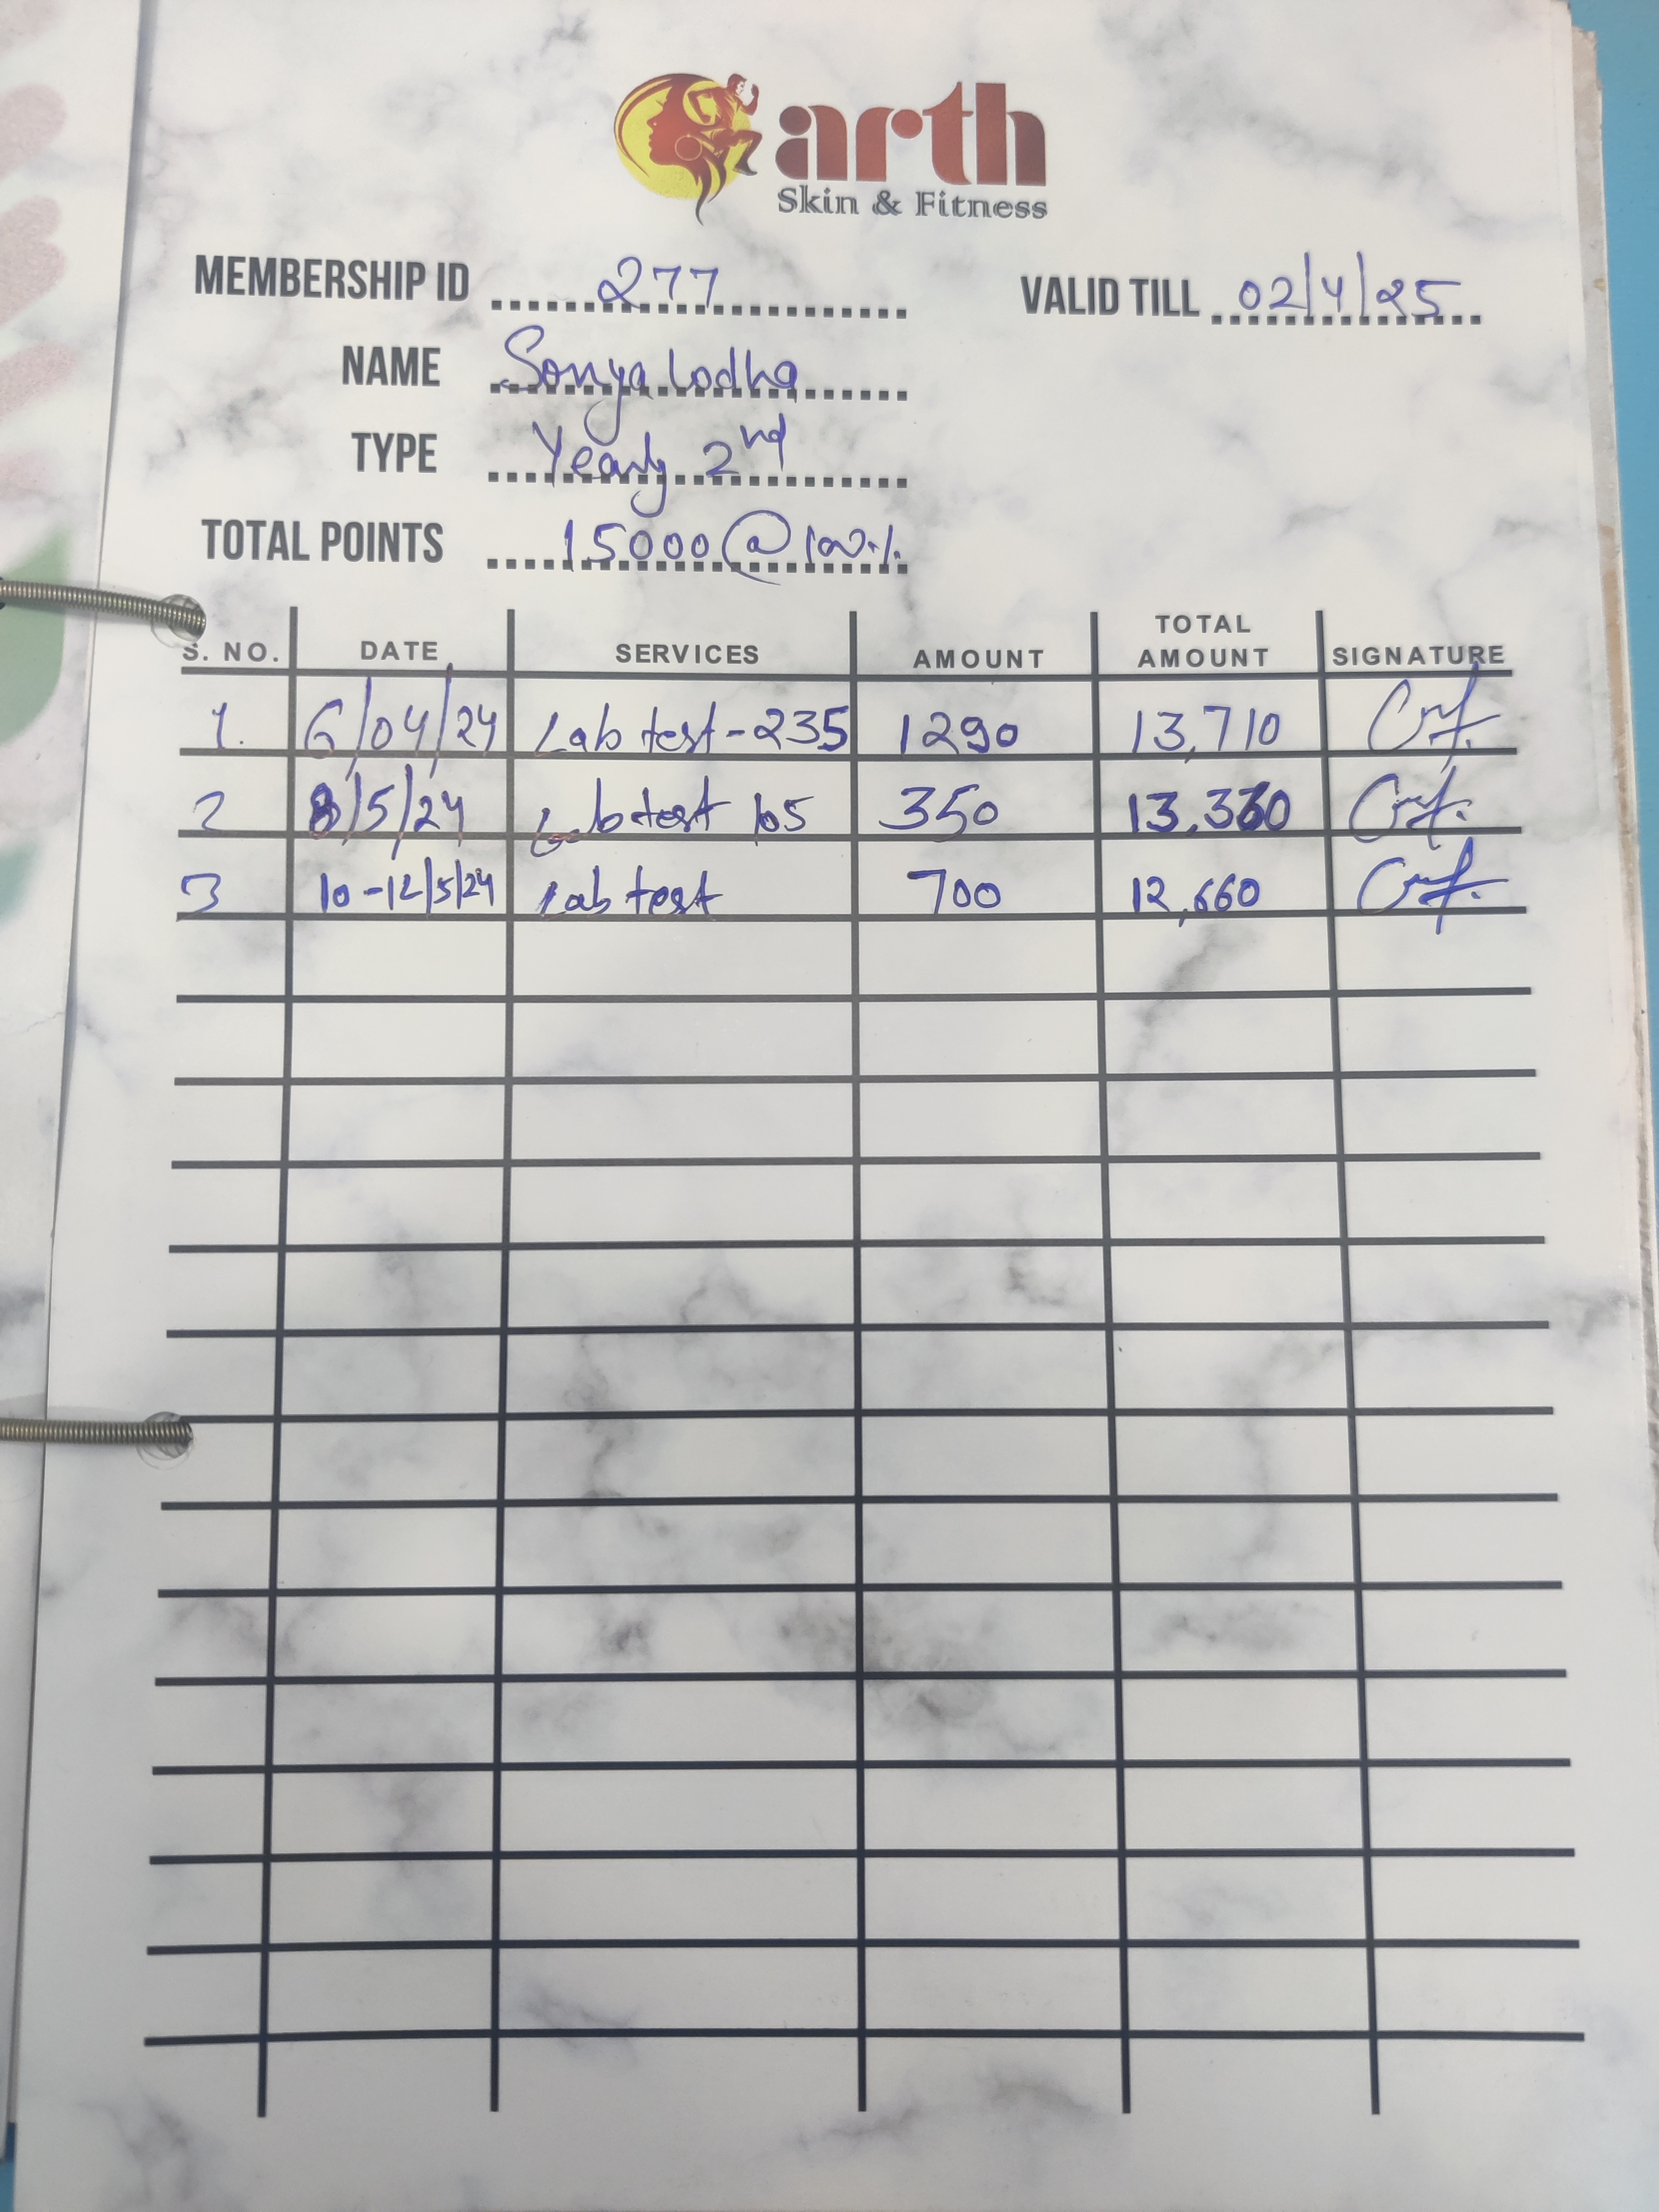 arth
Skin & Fitness
MEMBERSHIP ID 277 VALID TILL 02/4/25
NAME Sonya Lodha
TYPE Yearly 2nd
TOTAL POINTS 15000 @ 100%
S. NO. DATE SERVICES AMOUNT TOTAL AMOUNT SIGNATURE
1. 6/04/24 Lab test - 235 1290 13,710
2 8/5/24 Lab test 105 350 13,360
3 10-12/5/24 Lab test 700 12,660